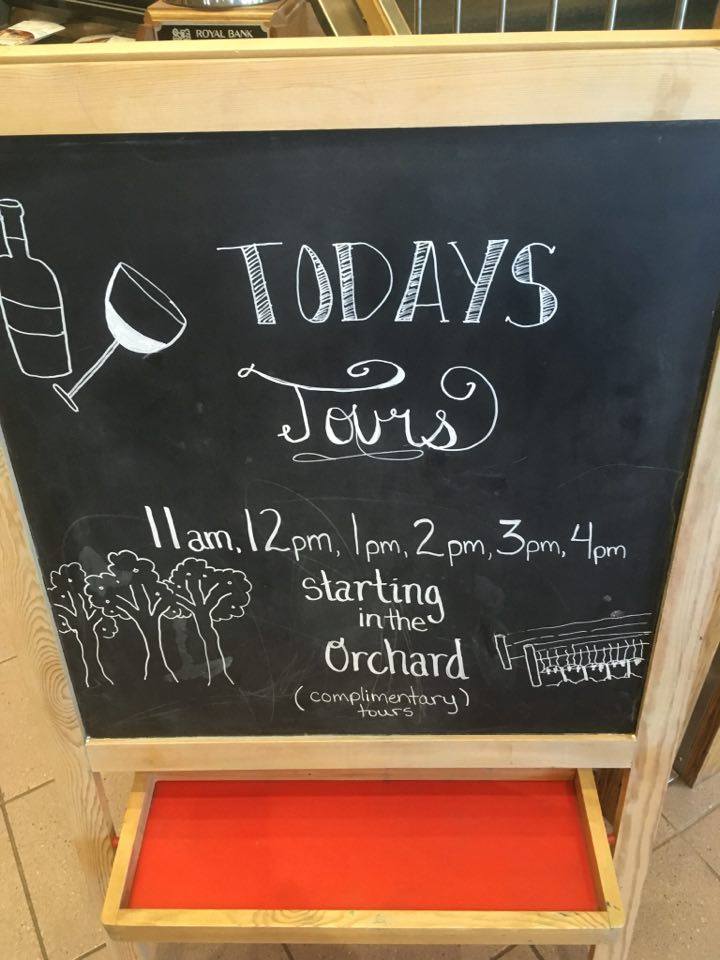 ROYAL BANK
TODAYS
Tours
11am, 12pm, 1pm, 2pm, 3pm, 4pm
starting
in the
Orchard
(complimentary)
tours